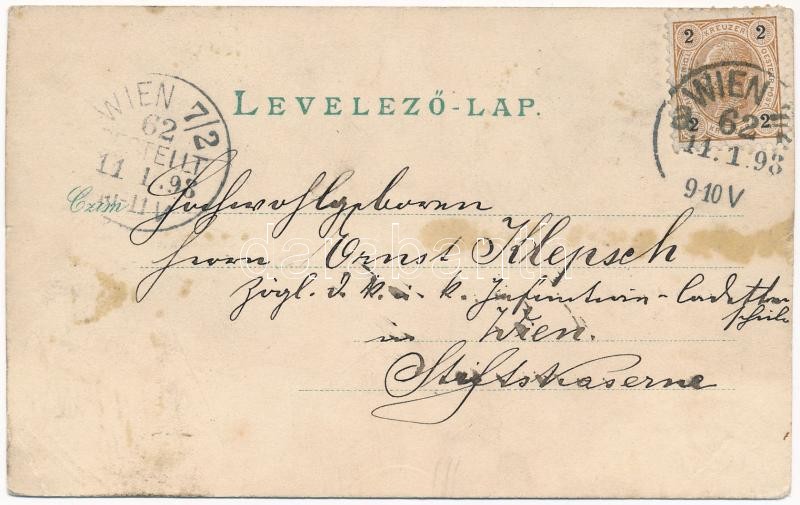 LEVELEZŐ-LAP.
2 KREUZER 2
2 2
WIEN
62
11.1.98
9-10 V
WIEN 7/2
62
BESTELLT
11.1.98
Czim
Hochwohlgeboren
Herrn Ernst Klepsch
Zögl. d. k. u. k. Infanterie-Cadetten
schule
in Wien.
Stiftskaserne